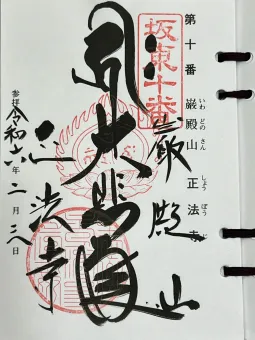 第十番 巌殿山 正法寺
いわ どの さん しょう ぼう じ
坂東十番
巌殿山
大悲殿
正法寺
参拝 令和六年二月 日